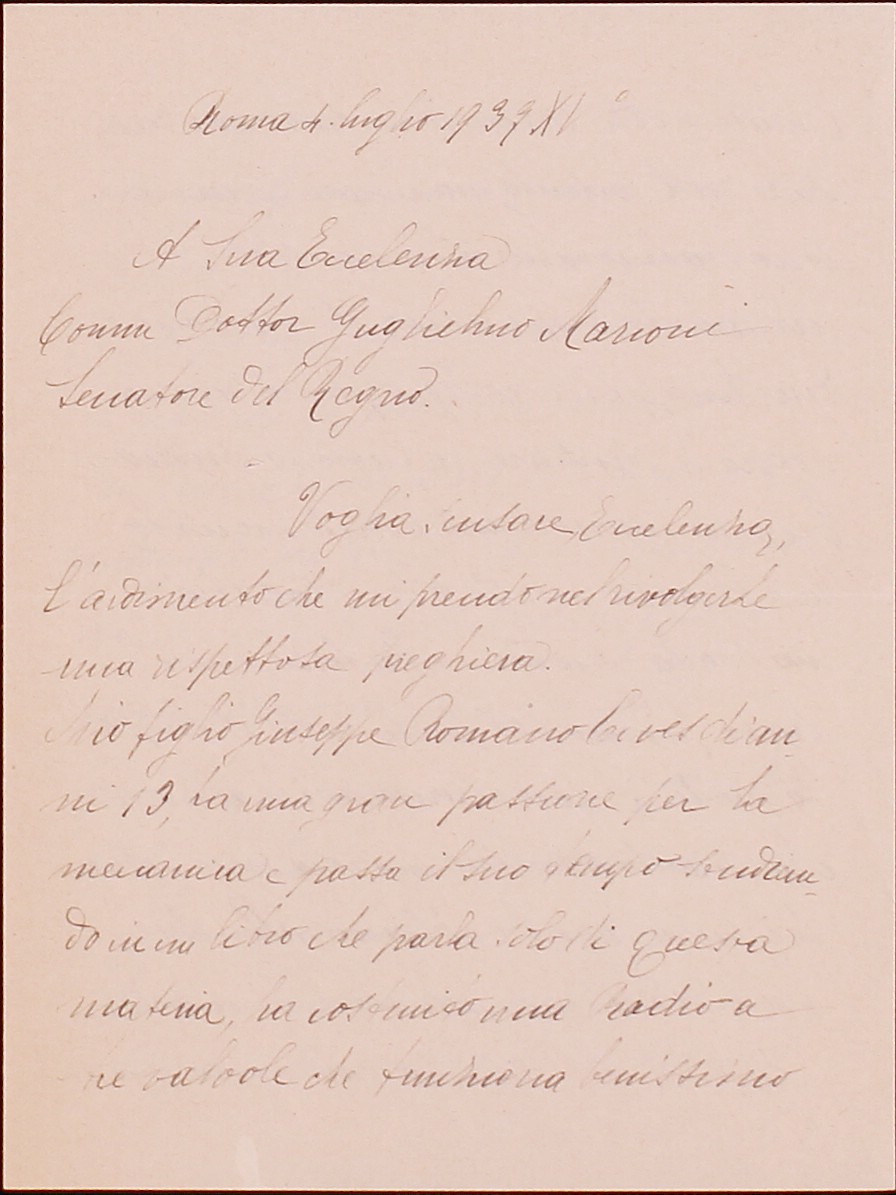 Roma 4. luglio 1937 XV°
A Sua Eccelenza
Comm Dottor Guglielmo Marconi
Senatore del Regno.
Voglia scusare, Eccelenza,
l'ardimento che mi prendo nel rivolgerle
una rispettosa preghiera.
Mio figlio Giuseppe Romano di an-
ni 13, ha una gran passione per la
meccanica e passa il suo tempo studian-
do in un libro che parla solo di questa
materia, ha costruito una Radio a
tre valvole che funziona benissimo